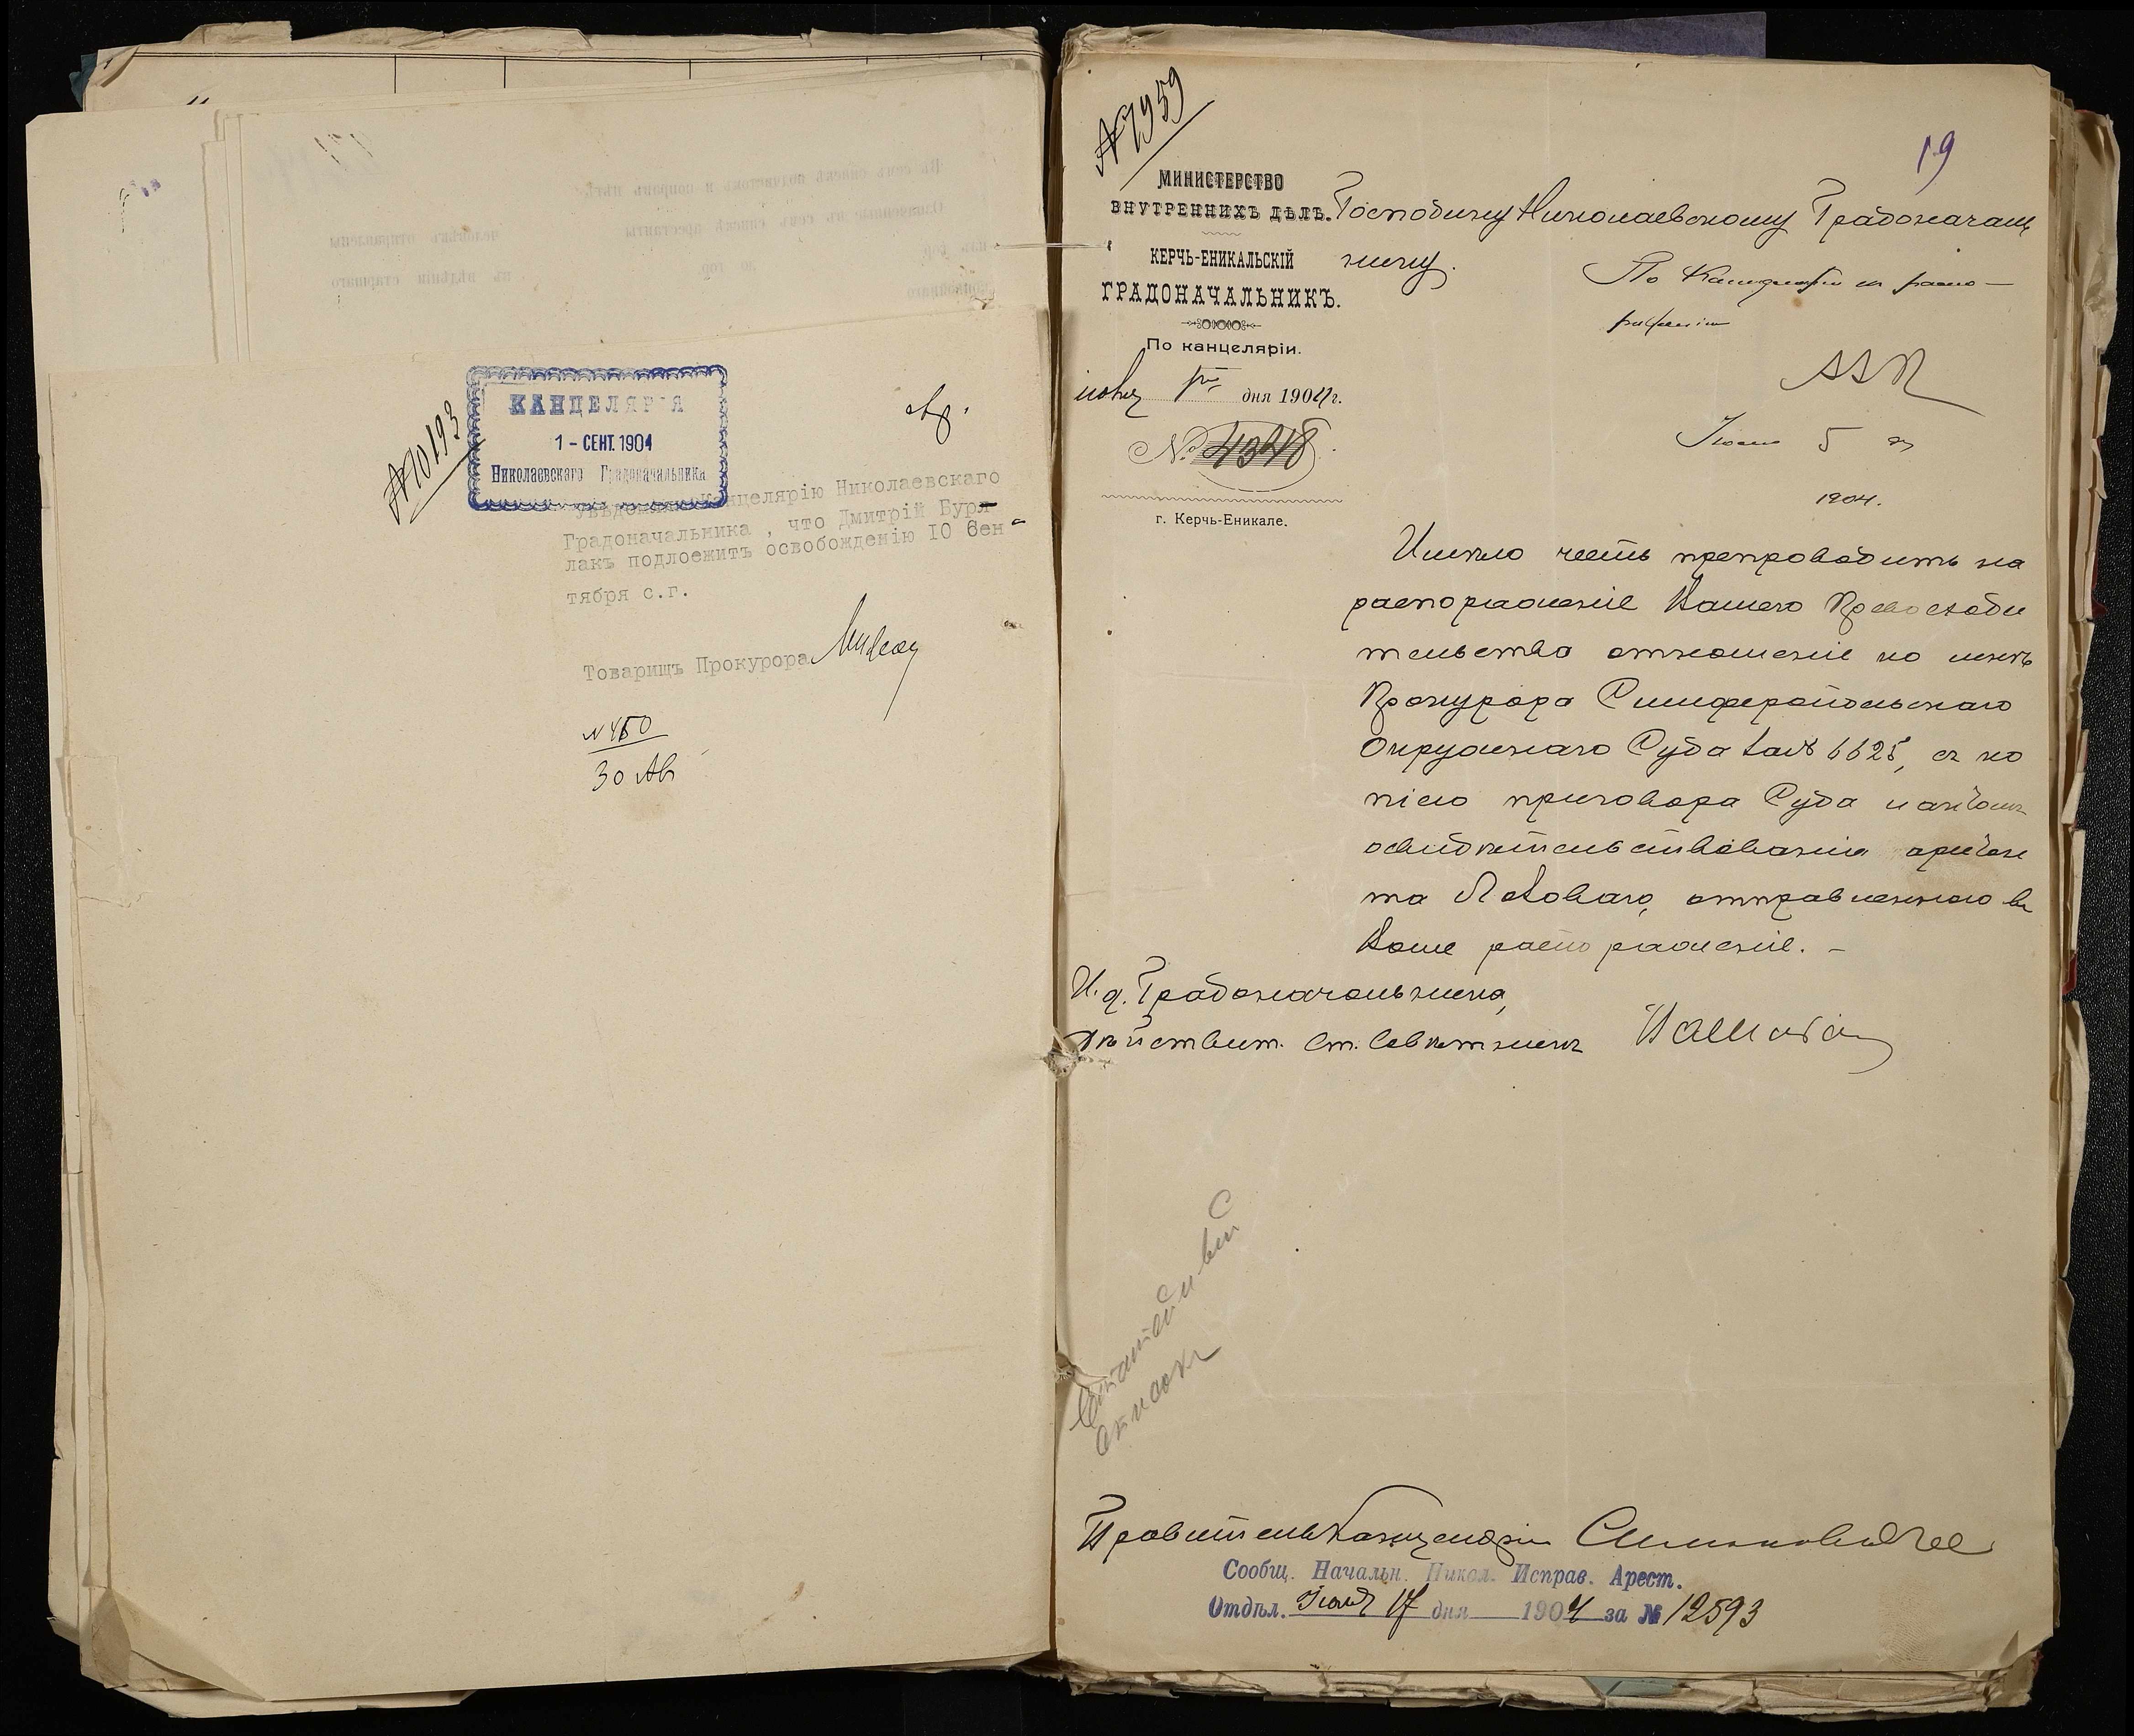 №10193
КАНЦЕЛЯРІЯ
1 - СЕНТ. 1904
Николаевскаго Градоначальника
Увѣдомляю Канцелярію Николаевскаго
Градоначальника , что Дмитрій Бурл-
лакъ подлоежитъ освобожденію 10 Сен-
тября с.г.
Товарищъ Прокурора
№ 450
30 Ав
№7959
19
МИНИСТЕРСТВО
ВНУТРЕННИХЪ ДѢЛЪ.
КЕРЧЬ-ЕНИКАЛЬСКІЙ
ГРАДОНАЧАЛЬНИКЪ.
По канцеляріи.
іюня 1 дня 1904 г.
№ 4348
г. Керчь-Еникале.
Господину Николаевскому Градоначаль
нику.
По
Іюня 5
1904.
Имѣю честь препроводить на
распоряженіе Вашего Превосходи
тельства отношеніе ко мнѣ
Прокурора Симферопольскаго
Окружнаго Суда за № 6625, съ ко
піею приговора Суда и актомъ
освидѣтельствованія арестан
та Лехова го, отправленнаго въ
Ваше распоряженіе. -
И. д. Градоначальника,
Дѣйствит. Ст. Совѣтникъ
Статейный
списокъ
Правитель Канцеляріи
Сообщ. Начальн. Никол. Исправ. Арест.
Отдѣл. Іюня 17 дня 1904 за № 12593